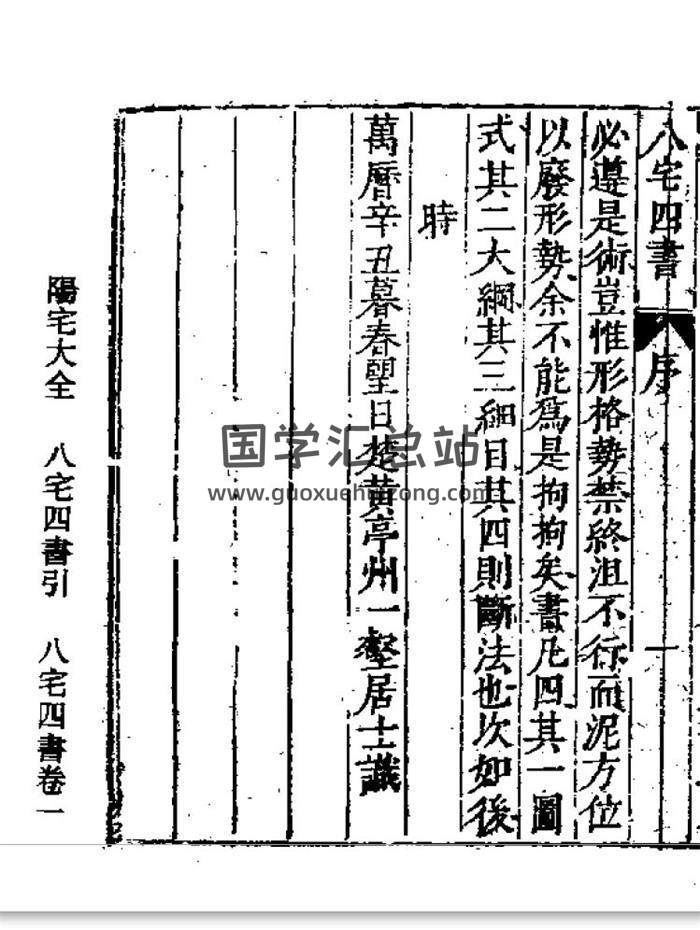 八宅四書 序 一
必遵是術豈惟形格勢禁終沮不行而泥方位
以廢形勢余不能爲是拘拘矣書凡四其一圖
式其二大綱其三細目其四則斷法也次如後
時
萬曆辛丑暮春望日楚黃亭州一壑居士識
陽宅大全 八宅四書引 八宅四書卷一
国学汇总站
www.guoxuehuizong.com